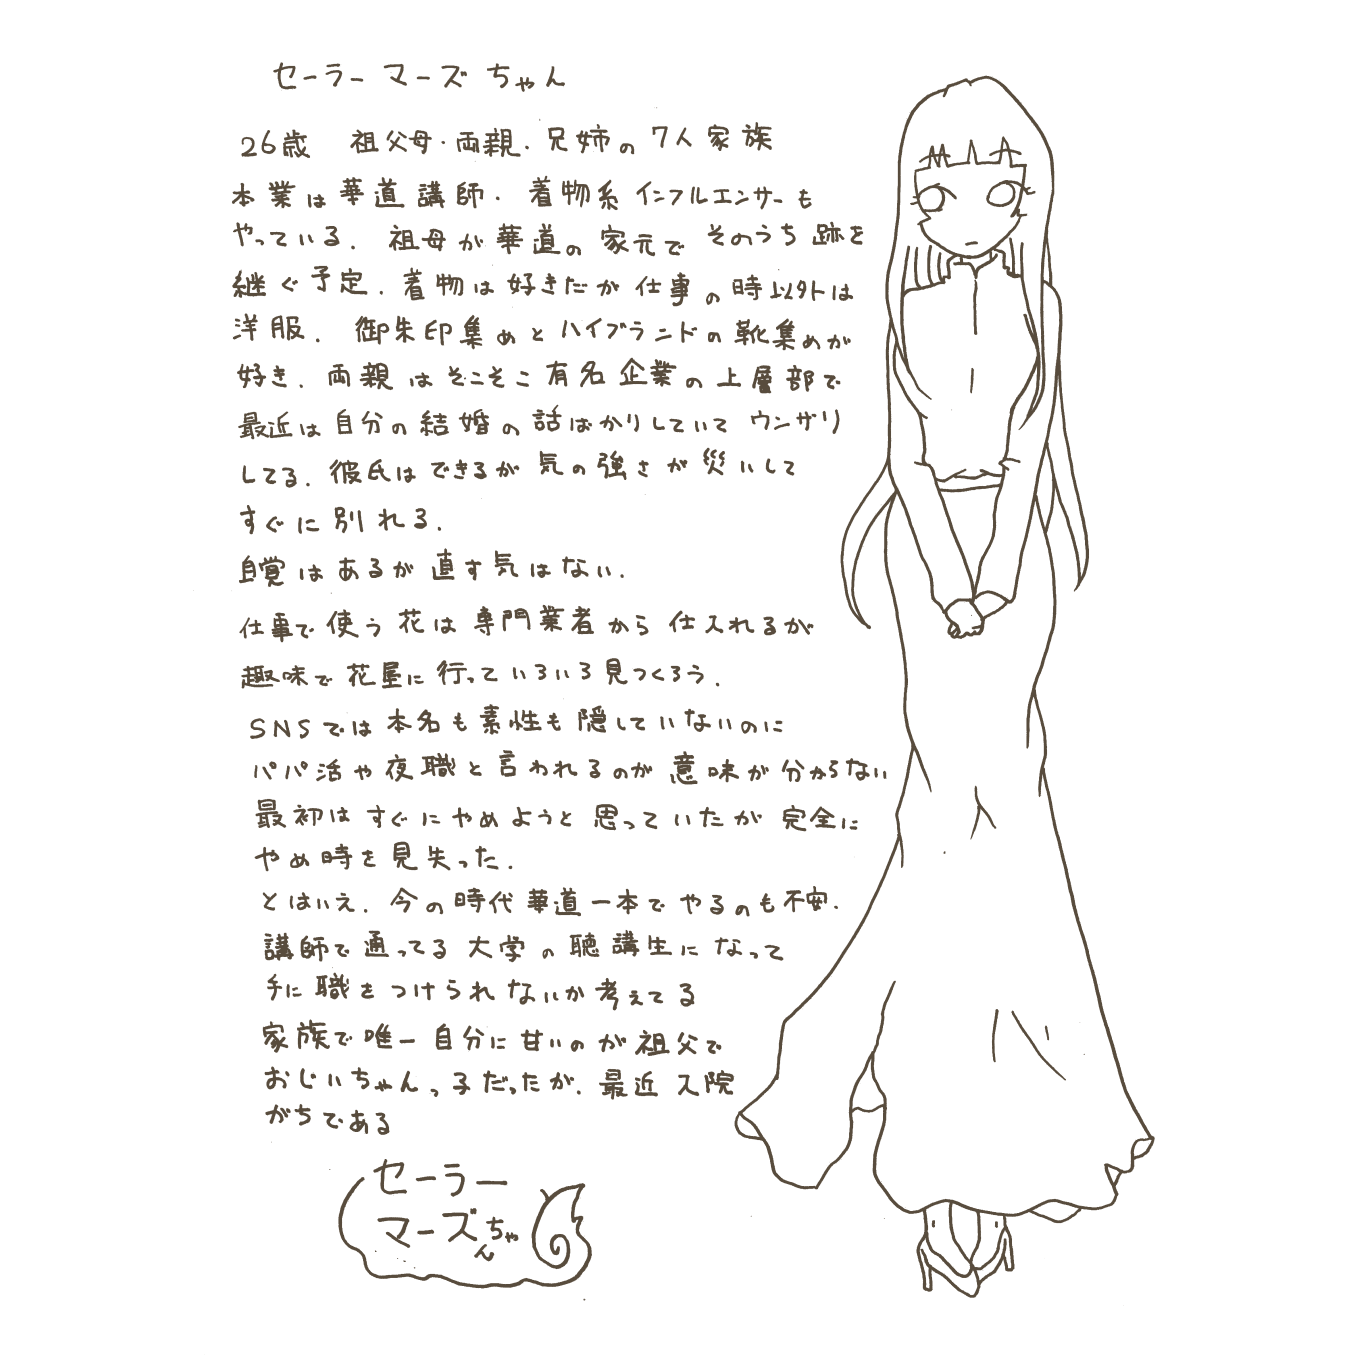 セーラーマーズちゃん
26歳 祖父母・両親・兄姉の7人家族
本業は華道講師. 着物系インフルエンサーも
やっている. 祖母が華道の家元でそのうち跡を
継ぐ予定. 着物は好きだが仕事の時以外は
洋服. 御朱印集めとハイブランドの靴集めが
好き. 両親はそこそこ有名企業の上層部で
最近は自分の結婚の話ばかりしていてウンザリ
してる. 彼氏はできるが気の強さが災いして
すぐに別れる.
自覚はあるが直す気はない.
仕事で使う花は専門業者から仕入れるが
趣味で花屋に行っていろいろ見つくろう.
SNSでは本名も素性も隠していないのに
パパ活や夜職と言われるのが意味が分からない
最初はすぐにやめようと思っていたが完全に
やめ時を見失った.
とはいえ. 今の時代華道一本でやるのも不安.
講師で通ってる大学の聴講生になって
手に職をつけられないか考えてる
家族で唯一自分に甘いのが祖父で
おじいちゃんっ子だったが. 最近入院
がちである
セーラー
マーズちゃん